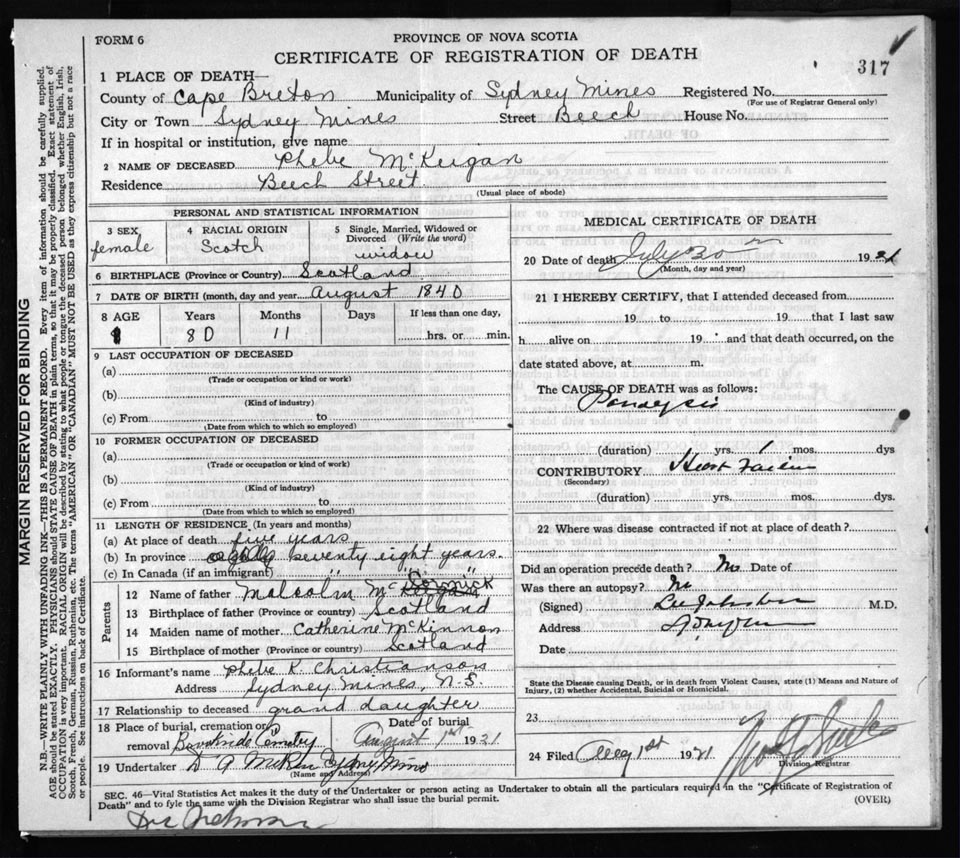 FORM 6
PROVINCE OF NOVA SCOTIA
CERTIFICATE OF REGISTRATION OF DEATH
317
1 PLACE OF DEATH—
County of Cape Breton Municipality of Sydney Mines Registered No.
(For use of Registrar General only)
City or Town Sydney Mines Street Beech House No.
If in hospital or institution, give name
2 NAME OF DECEASED Phebe McKeigan
Residence Beech Street.
(Usual place of abode)
PERSONAL AND STATISTICAL INFORMATION
3 SEX female
4 RACIAL ORIGIN Scotch
5 Single, Married, Widowed or Divorced (Write the word) widow
6 BIRTHPLACE (Province or Country) Scotland
7 DATE OF BIRTH (month, day and year) August 1840
8 AGE Years Months Days If less than one day,
80 11 hrs. or min.
9 LAST OCCUPATION OF DECEASED
(a)
(Trade or occupation or kind or work)
(b)
(Kind of industry)
(c) From to
(Date from which to which so employed)
10 FORMER OCCUPATION OF DECEASED
(a)
(Trade or occupation or kind or work)
(b)
(Kind of industry)
(c) From to
(Date from which to which so employed)
11 LENGTH OF RESIDENCE (In years and months)
(a) At place of death five years
(b) In province seventy eight years.
(c) In Canada (if an immigrant) " " "
Parents
12 Name of father Malcolm McCormick
13 Birthplace of father (Province or country) Scotland
14 Maiden name of mother Catherine McKinnon
15 Birthplace of mother (Province or country) Scotland
16 Informant's name Phebe K. Christianson
Address Sydney Mines, N.S.
17 Relationship to deceased grand daughter
18 Place of burial, cremation or removal Cemetery
Date of burial August 1st 1921
19 Undertaker D A Sydney Mines
(Name and Address)
MEDICAL CERTIFICATE OF DEATH
20 Date of death July 30th 1921
(Month, day and year)
21 I HEREBY CERTIFY, that I attended deceased from
19 to 19 that I last saw
h alive on 19 and that death occurred, on the
date stated above, at m.
The CAUSE OF DEATH was as follows:
Paralysis
(duration) yrs. 1 mos. dys
CONTRIBUTORY Heart Failure
(Secondary)
(duration) yrs. mos. dys.
22 Where was disease contracted if not at place of death?
Did an operation precede death? No Date of
Was there an autopsy? No
(Signed) M.D.
Address
Date
State the Disease causing Death, or in death from Violent Causes, state (1) Means and Nature of
Injury, (2) whether Accidental, Suicidal or Homicidal.
23
24 Filed Aug 1st 1921
Division Registrar
SEC. 46—Vital Statistics Act makes it the duty of the Undertaker or person acting as Undertaker to obtain all the particulars required in the "Certificate of Registration of
Death" and to fyle the same with the Division Registrar who shall issue the burial permit.
(OVER)
MARGIN RESERVED FOR BINDING
N.B.—WRITE PLAINLY WITH UNFADING INK—THIS IS A PERMANENT RECORD. Every item of information should be carefully supplied.
AGE should be stated EXACTLY. PHYSICIANS should STATE CAUSE OF DEATH in plain terms, so that it may be properly classified. Exact statement of
OCCUPATION is very important. RACIAL ORIGIN will be described by stating to what people or tongue the deceased person belonged whether English, Irish,
Scotch, French, German, Russian, Ruthenian, etc. The terms "AMERICAN" or "CANADIAN" MUST NOT BE USED as they express citizenship but not a race
or people. See instructions on back of Certificate.